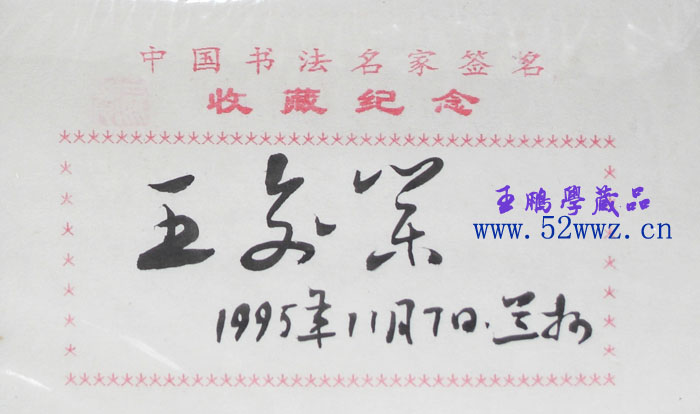 中国书法名家签名
收藏纪念
王
王鹏學蔵品
www.52wwz.cn
1995年11月7日.兰州